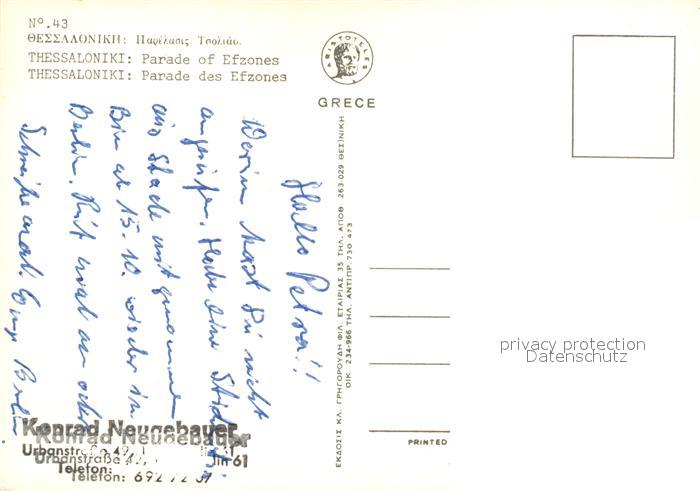 Nº.43
ΘΕΣΣΑΛΟΝΙΚΗ: Παρέλασις Τσολιάδ.
THESSALONIKI: Parade of Efzones
THESSALONIKI: Parade des Efzones
ARISTOTELES
GRECE
Hallo Petra!!
Warum hast Du nicht
angerufen. Habe eine
aus Stade mitgenommen
Bin ab 15.10. wieder in
Berlin. Ruf mal an oder
Schreibe mal.
Berlin
Konrad Neugebauer
Konrad Neugebauer
Urbanstraße
Urbanstraße
lin 61
Telefon:
Telefon: 692
ΕΚΔΟΣΙΣ ΚΛ. ΓΡΗΓΟΡΟΥΔΗ ΦΙΛ. ΕΤΑΙΡΙΑΣ 35 ΤΗΛ. ΑΠΟΘ. 263.029 ΘΕΣ)ΝΙΚΗ
ΟΙΚ. 234-966 ΤΗΛ. ΑΝΤΙΠΡ. 730-473
privacy protection
Datenschutz
PRINTED